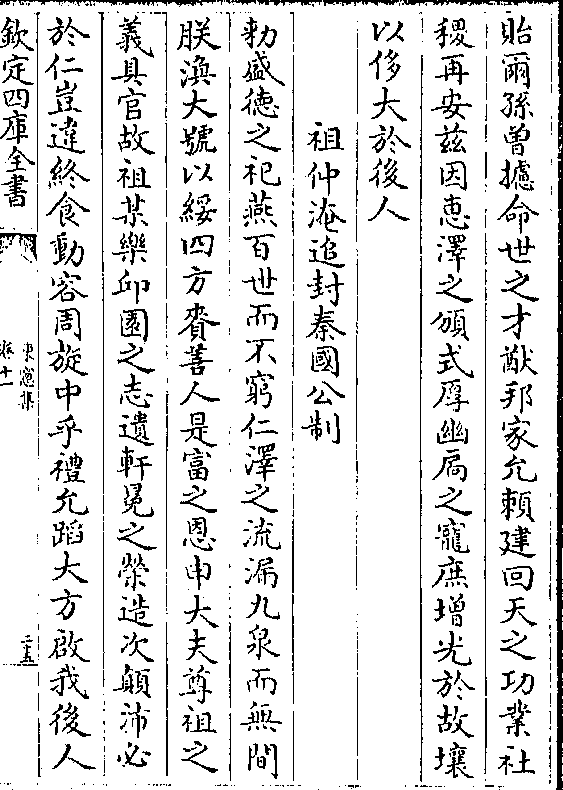 貽爾孫曾攄命世之才猷邦家允賴建回天之功業社
稷再安兹因惠澤之頒式厚幽扄之寵庶增光於故壤
以侈大於後人
祖仲淹追封秦國公制
勅盛徳之祀燕百世而不窮仁澤之流漏九泉而無間
朕渙大號以綏四方賚善人是富之恩申大夫尊祖之
義具官故祖某樂邱園之志遺軒冕之榮造次顛沛必
於仁豈違終食動容周旋中乎禮允蹈大方啟我後人
欽定四庫全書
東窻集
卷十一
二五